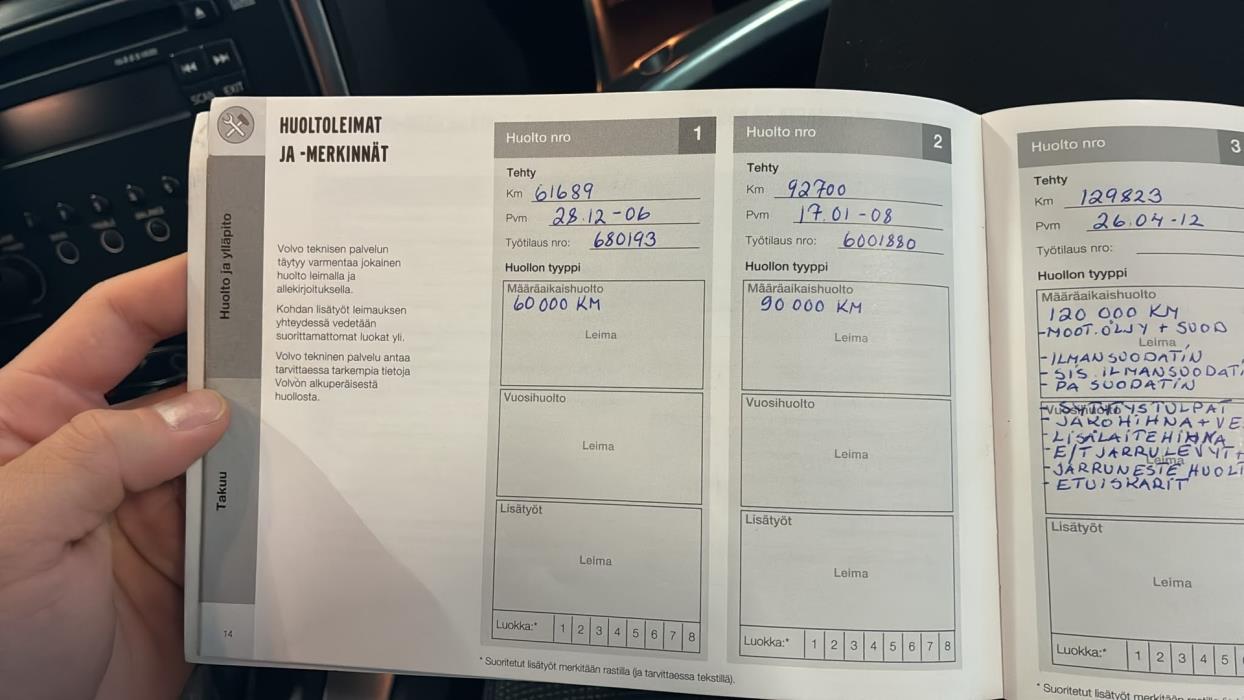 SCAN
EXIT
HUOLTOLEIMAT
JA -MERKINNÄT
Volvo teknisen palvelun
täytyy varmentaa jokainen
huolto leimalla ja
allekirjoituksella.
Kohdan lisätyöt leimauksen
yhteydessä vedetään
suorittamattomat luokat yli.
Volvo tekninen palvelu antaa
tarvittaessa tarkempia tietoja
Volvon alkuperäisestä
huollosta.
Huolto ja ylläpito
Takuu
14
Huolto nro 1
Tehty
Km 61689
Pvm 28.12-06
Työtilaus nro: 680193
Huollon tyyppi
Määräaikaishuolto
60 000 KM
Leima
Vuosihuolto
Leima
Lisätyöt
Leima
Luokka:* 1 2 3 4 5 6 7 8
* Suoritetut lisätyöt merkitään rastilla (ja tarvittaessa tekstillä).
Huolto nro 2
Tehty
Km 92700
Pvm 17.01-08
Työtilaus nro: 6001880
Huollon tyyppi
Määräaikaishuolto
90 000 KM
Leima
Vuosihuolto
Leima
Lisätyöt
Leima
Luokka:* 1 2 3 4 5 6 7 8
Huolto nro 3
Tehty
Km 129823
Pvm 26.04-12
Työtilaus nro:
Huollon tyyppi
Määräaikaishuolto
120 000 KM
-MOOT.ÖLJY + SUOD
Leima
-ILMANSUODATIN
- SIS. ILMANSUODATI
- PA SUODATIN
Vuosihuolto
- SYTYTYSTULPAT
- JAKOHIHNA + VE
-LISÄLAITEHIHNA
-E/T JARRULEVYT+
Leima
-JARRUNESTE HUOL
- ETUISKARIT
Lisätyöt
Leima
Luokka:* 1 2 3 4 5
* Suoritetut lisätyöt merkitään rast